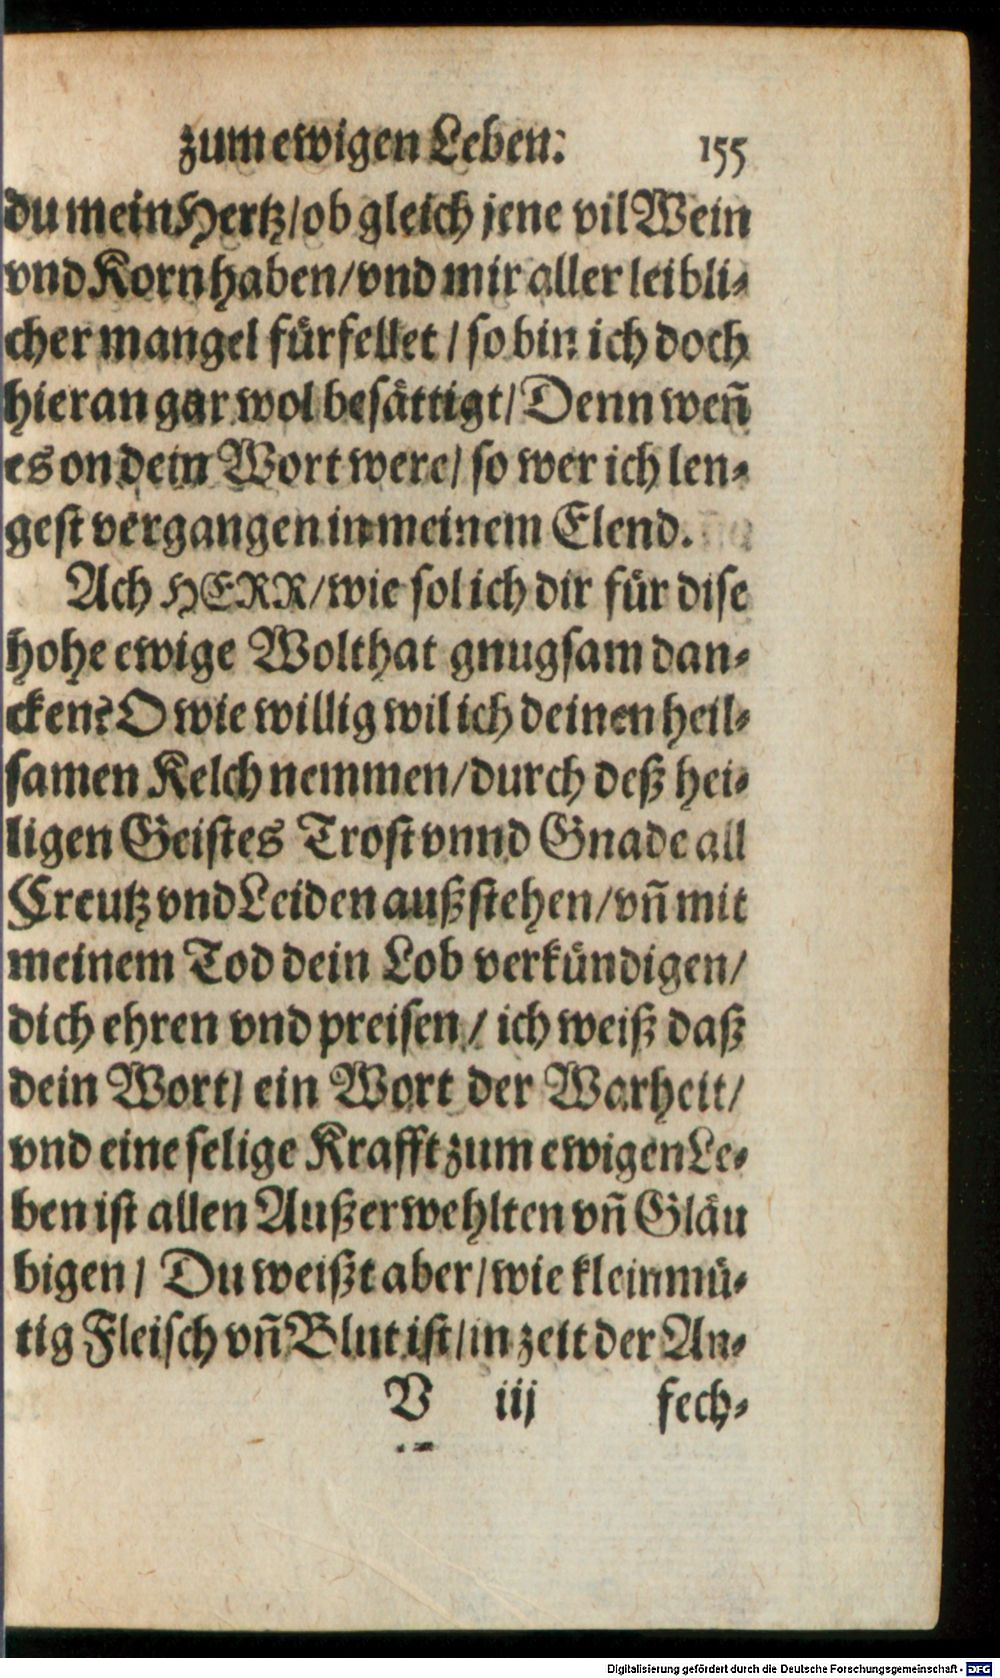 zum ewigen Leben: 155
du mein Hertz/ob gleich jene vil Wein
vnd Korn haben/vnd mir aller leibli⸗
cher mangel fürfellet / so bin ich doch
hieran gar wol besättigt/Denn wen̄
es on dein Wort were/ so wer ich len⸗
gest vergangen in meinem Elend.
Ach HERR/wie sol ich dir für dise
hohe ewige Wolthat gnugsam dan⸗
cken? O wie willig wil ich deinen heil⸗
samen Kelch nemmen/durch deß hei⸗
ligen Geistes Trost vnnd Gnade all
Creutz vnd Leiden außstehen/vn̄ mit
meinem Tod dein Lob verkündigen/
dich ehren vnd preisen/ ich weiß daß
dein Wort/ ein Wort der Warheit/
vnd eine selige Krafft zum ewigen Le⸗
ben ist allen Außerwehlten vn̄ Gläu
bigen/ Du weißt aber/wie kleinmü⸗
tig Fleisch vn̄ Blut ist/in zeit der An⸗
V iij fech⸗
Digitalisierung gefördert durch die Deutsche Forschungsgemeinschaft - DFG